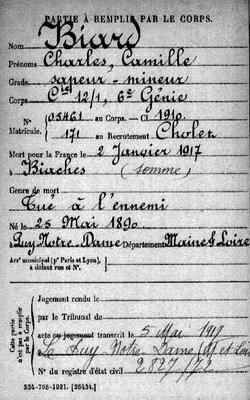 PARTIE À REMPLIR PAR LE CORPS.
Nom Biard
Prénoms Charles, Camille
Grade sapeur-mineur
Corps Cie 12/1, 6e Génie
N° 05461 au Corps. — Cl 1910.
Matricule. 171 au Recrutement Cholet
Mort pour la France le 2 Janvier 1917
à Biaches (Somme)
Genre de mort
Tué à l'ennemi
Né le 25 Mai 1890
à Puy Notre-Dame Département Maine & Loire
Arr' municipal (p' Paris et Lyon),
à défaut rue et N°.
Cette partie
n'est pas à remplir
par le Corps.
Jugement rendu le
par le Tribunal de
acte ou jugement transcrit le 5 Mai 1917
Le Puy-Notre Dame (M et Loire
N° du registre d'état civil 2827/72
534-708-1921. [26434].